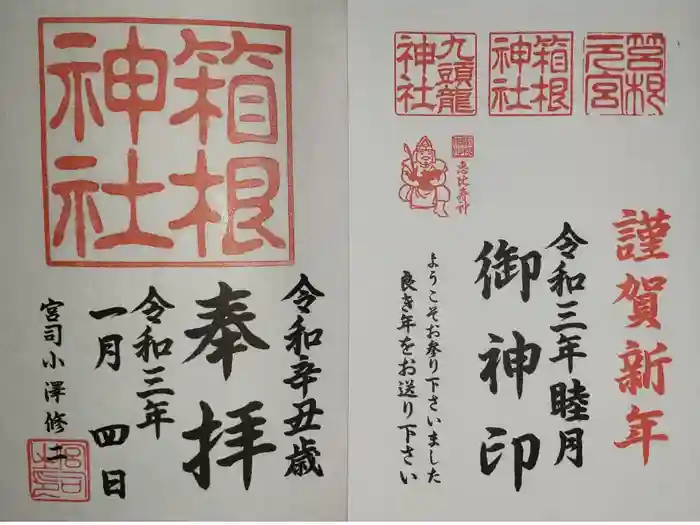 謹賀新年
令和三年睦月
御神印
ようこそお参り下さいました
良き年をお送り下さい
箱根
元宮
箱根
神社
九頭龍
神社
恵比寿神
箱根
神社
令和辛丑歳
奉拝
令和三年
一月 四日
宮司小澤修二